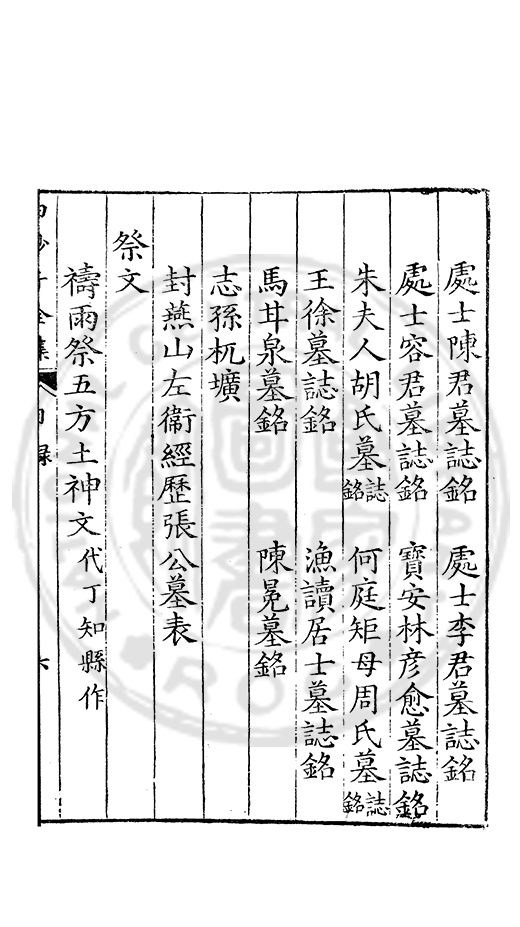 處士陳君墓誌銘　處士李君墓誌銘
處士容君墓誌銘　寶安林彥愈墓誌銘
朱夫人胡氏墓誌銘　何庭矩母周氏墓誌銘
王徐墓誌銘　漁讀居士墓誌銘
馬⽿泉墓銘　陳冕墓銘
志孫杌壙
封燕山左衞經歷張公墓表
祭文
禱雨祭五方土神文代丁知縣作
全集　目錄　六